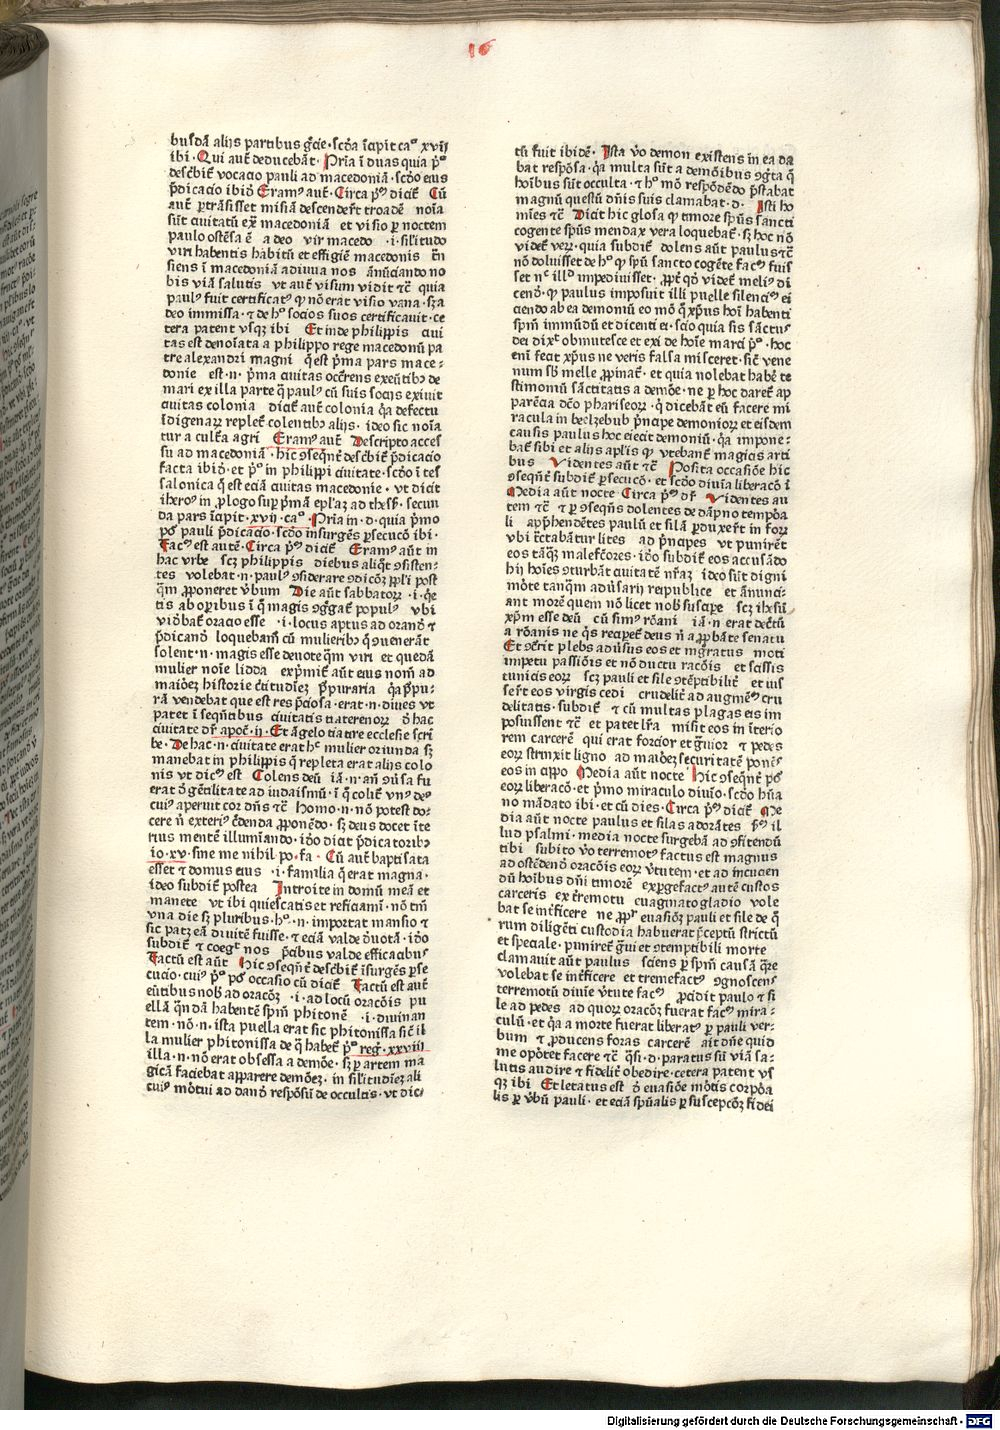 16
busdā alijs partibus gr̄cie · scd̄a īcipit caº xvij
ibi · Qui aut̄ deducebāt · Pria ī duas quia pº
describit̄ vocacio pauli ad macedoniā · scd̄o eius
p̄dicacio ibiꝰ Eramꝰ aut̄ · Circa pº dicit̄ Cū
aut̄ ꝑtrāsisset misiā descender̄t troadē noīa
sūt ciuitatū ex̄ macedoniā et visio ꝑ noctem
paulo oste̅sa ē a deo vir macedo · i · sīlitudo
viri habentis habitū et effigiē macedonis Trā
siens ī macedoniā adiuua nos ānūciando no
bis viā salutis vt aut̄ visum vidit ⁊c̄ quia
paulꝰ fuit certificatꝰ ꝙ nō erat visio vana · sꝫ a
deo immissa · ⁊ de hº socios suos certificauit · ce
tera patent vsqꝫ ibi Et inde philippis ciui
tas est denoīata a philippo rege macedonū pa
tre alexandri magni q̄ est p̄ma pars mace⸗
donie est · n · p̄ma ciuitas occr̄ens exeūtibꝰ de
mari ex illa parte q̄ paulꝰ cū suis socijs exiuit
ciuitas colonia dicit̄ aut̄ colonia q̄a defectu
īdigenaꝝ replet̄ colentibꝰ alijs · ideo sic noīa
tur a cult̄a agri Eramꝰ aut̄ Descripto acces
su ad macedoniā · hic ꝯseqn̄t̄ describit̄ p̄dicacio
facta ibiꝰ · et pº in philippi ciuitate · scd̄o ī tes
salonica q̄ est eciā ciuitas macedonie · vt dicit
iheroꝰ in ꝓlogo suꝑ p̄mā eplaꝫ ad thess̄ · secun
da pars īcipit · xvij · caº · Pria in · d · quia p̄mo
pōꝰ pauli p̄dicacio · scd̄o insurgēs ꝑsecucō ibi ·
Facꝰ est autē · Circa pº dicit̄ Eramꝰ aūt in
hac vrbe scꝫ philippis diebus aliqt̄ ꝯsisten⸗
tes volebat · n · paulꝰ ꝯsiderare ꝯdicōꝫ ppl̄i post
q̄m ꝓponeret v̄bum Die aūt sabbatoꝝ · i · q̄e
tis ab oꝑibus ī q̄ magis ꝯg̅gat̄ populꝰ vbi
videbat̄ oracio esse · i · locus aptus ad orandū ⁊
p̄dicandū loquebam̄ cū mulieribꝰ q̄ ꝯuenerāt
solent · n · magis esse deuote q̄m viri et quedā
mulier noīe lidda exp̄mit̄ aūt eius nom̄ ad
maiorē historie c̄titudieꝫ pꝰpuraria q̄a pꝰpu⸗
rā vendebat que est res p̄ciosa · erat · n · diues vt
patet ī seqn̄tibus ciuitatis tiaterenoꝝ ꝺ hac
ciuitate dr̄ apoc̄ · ij · Et āgelo tiatire ecclesie scri
be · De hac · n · ciuitate erat hº mulier oriunda sꝫ
manebat in philippis q̄ repleta erat alijs colo
nis vt dicꝰ est Colens deū iā · n · an̄ ꝯūsa fu
erat ꝺ gētilitate ad iudaismū · ī q̄ colit̄ vnꝰ deꝰ
cuiꝰ aperuit cor dn̄s ⁊c̄ Homo · n · nō potest do⸗
cere n̄ exteriꝰ c̄denda ꝓponēdo · sꝫ deus docet īte
rius mentē illumīando · idō dicit p̄dicatoribꝰ
io · xv · sine me nihil po · fa · Cū aut̄ baptisata
esset ⁊ domus eius · i · familia q̄ erat magna ·
ideo subdit̄ postea Introite in domū meā et
manete vt ibi quiescatis et reficiami · nō tm̄
vna die sꝫ pluribus · hº · n · importat mansio ⁊
sic patꝫ eā diuitē fuisse · ⁊ eciā valde d̄uotā · idō
subdit̄ ⁊ coegit nos p̄cibus valde efficacibus
Factū est aūt Hic ꝯseqn̄t̄ describit̄ īsurgēs ꝑse
cucio · cuiꝰ pº pōꝰ occasio cū dicit̄ Factū est aut̄
eūtibus nob̄ ad oracōꝫ · i · ad locū oracōis pu
ellā qn̄dā habentē spm̄ phitonē · i · diuinan
tem · nō · n · ista puella erat sic phitonissa sic̄ il
la mulier phitonissa de q̄ habet̄ pº reg̅ · xxviij
illa · n · nō erat obsessa a demōe · sꝫ ꝑ artem ma
gicā faciebat apparere demōeꝫ · in sīlitudīeꝫ ali
cuiꝰ mōtui ad dandū respōsū de occultis · vt dic⸗
tū fuit ibidē · Ista v̄o demon existens in ea da
bat respōsa · q̄a multa sūt a demōibus ꝯgīta q̄
hoībus sūt occulta · ⁊ hº mō respōdēdo p̄stabat
magnū questū dn̄is suis clamabat · d · Isti ho
mīes ⁊c̄ Dicit hic glosa ꝙ timore spūs sancti
cogente spūs mendax vera loquebat̄ · sꝫ hoc nō
videt̄ veꝝ · quia subdit̄ dolens aūt paulus ⁊c̄
nō doluisset de hº ꝙ spū sancto cogēte facꝰ fuis
set nᶜ illᵈ impediuisset · ꝓpt̄ qd̄ videt̄ meliꝰ di
cendū · ꝙ paulus imposuit illi puelle silenciū ei
ciendo ab ea demoniū eo mō q̄ xp̄us hoī habenti
spm̄ immūdū et dicenti ei · scio quia sis sāctus
dei dixͭ obmutesce et exi de hoīe marci pº · hoc
enī fecit xp̄us ne veris falsa misceret · sic̄ vene
num sb̄ melle ꝓpinat̄ · et quia nolebat habēe te
stimoniū sāctitatis a demōe · ne ꝑ hoc daret̄ ap
parēcia dc̄o phariseoꝝ · q̄ dicebāt eū facere mi
racula in beelzebub p̄ncipe demonioꝝ et eisdem
causis paulus hoc eiecit demoniū · q̄a impone⸗
bat̄ sibi et alijs aplis ꝙ vtebant̄ magicis arti
bus Videntes aūt ⁊c̄ Posita occasiōe hic
ꝯseqn̄t̄ subdit̄ ꝑsecucō · et scd̄o diuīa liberacō ī
Media aūt nocte Circa pº dr̄ Videntes au
tem ⁊c̄ ⁊ ꝑ ꝯseqn̄s dolentes de dāpno tempōa
li app̄hendētes paulū et silā ꝑduxer̄t in foꝝ
vbi tractabātur lites ad p̄ncipes vt punirēt
eos tāqꝫ malefcōres · idō subdit̄ eos accusādo
hij hoīes ꝯturbāt ciuitatē nr̄aꝫ ideo sūt digni
mōte tanq̄m aduersarij reipublice et ānunci⸗
ant morē quem nō licet nob̄ suscipe scꝫ ihesū
xp̄m esse deū cū simꝰ rōani iā · n · erat decr̄tū
a rōanis ne q̄s recipet̄ deus n̄ a ꝓbāte senatu
Et ꝯc̄rit plebs adūsus eos et mgratus moti
impetu passiōis et nō ductu racōis et scissis
tunicis eoꝝ scꝫ pauli et sile ꝯtēptibilit̄ et ius
ser̄t eos virgis cedi crudelit̄ ad augmētū cru
delitatis · subdit̄ ⁊ cū multas plagas eis im
posuissent ⁊c̄ et patet lr̄a misit eos in īterio
rem carcerē qui erat forcior et gͣuior ⁊ pedes
eoꝝ strinxit ligno ad maiorēꝫ securitatē ponēs
eos in cippo Media aūt nocte Hic ꝯseqn̄t̄ pōꝰ
eoꝝ liberacō · et p̄mo miraculo diuīo · scd̄o hūa
no mādato ibi · et cū dies · Circa pº dicit̄ Me
dia aūt nocte paulus et silas adorātes scdꝫ il
lud psalmi · media nocte surgebā ad ꝯfitendū
tibi subito v̄o terremotꝰ factus est magnus
ad ostēdendū oracōis eoꝝ v̄tutem · et ad incucien
dū hoībus dn̄i timorē exꝑgefactꝰ autē custos
carceris ex tr̄remotu euaginato gladio vole
bat se int̄ficere ne ꝓpꝉ euasiōeꝫ pauli et sile de q̄
rum diligēti custodia habuerat p̄ceptū strictū
et speciale · puniret̄ gͣui et ꝯtemptibili morte
clamauit aūt paulus sciens ꝑ spm̄ causā q̄re
volebat se int̄ficere et tremefactꝰ ꝯgnoscens
terremotū diuīe v̄tute facꝰ ꝓcidit paulo ⁊ si
le ad pedes ad quoꝝ oracōꝫ fuerat facꝰ mira⸗
culū · et q̄a a morte fuerat liberatꝰ ꝑ pauli ver⸗
bum ⁊ ꝓducens foras carcerē ait dn̄e quid
me opōtet facere ⁊c̄ qsi · d · paratus sū viā sa⸗
lutis audire ⁊ fidelit̄ obedire · cetera patent vs
qꝫ ibi Et letatus est ꝺ euasiōe mōtis corpōa
lis ꝑ v̄bū pauli · et eciā spūalis ꝑ suscepcōꝫ fidei
Digitalisierung gefördert durch die Deutsche Forschungsgemeinschaft - DFG